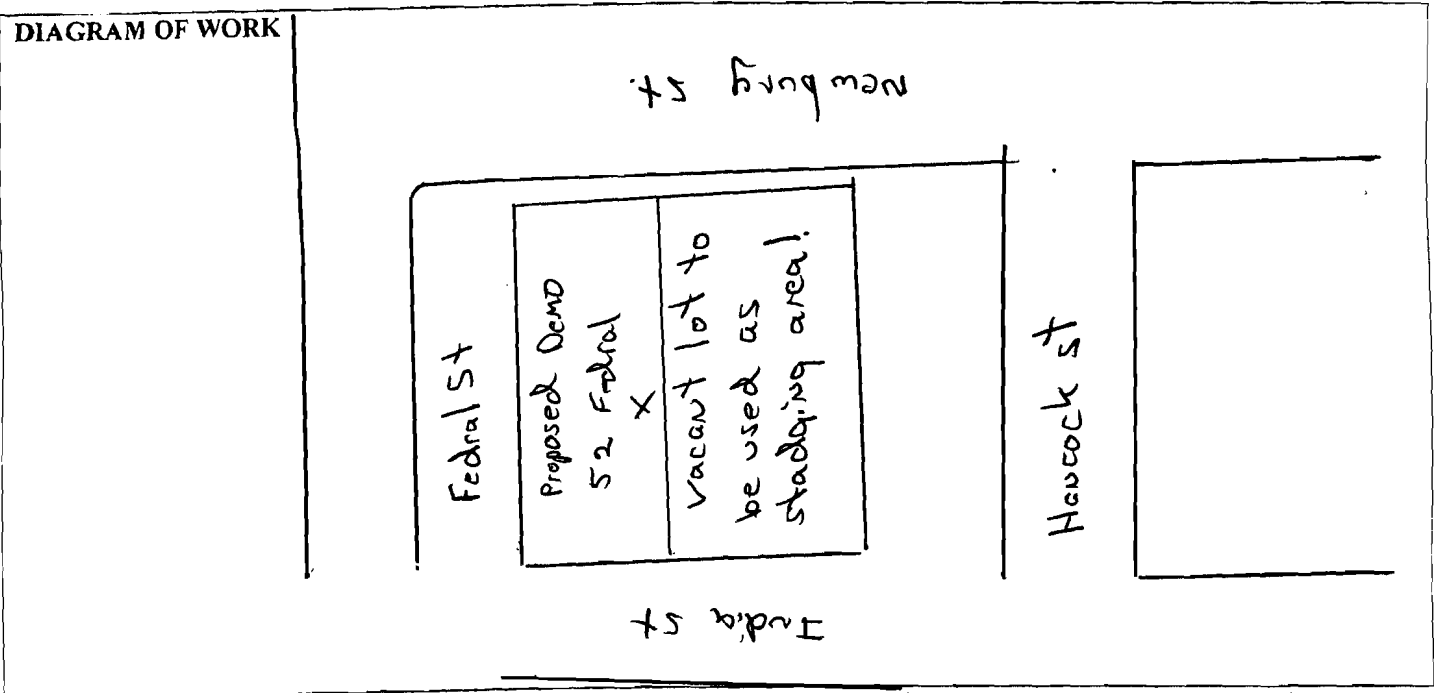 DIAGRAM OF WORK
Newbury St.
Fedral St
Proposed Demo
52 Fedral
X
vacant lot to
be used as
stadging area!
Hancock St
India St